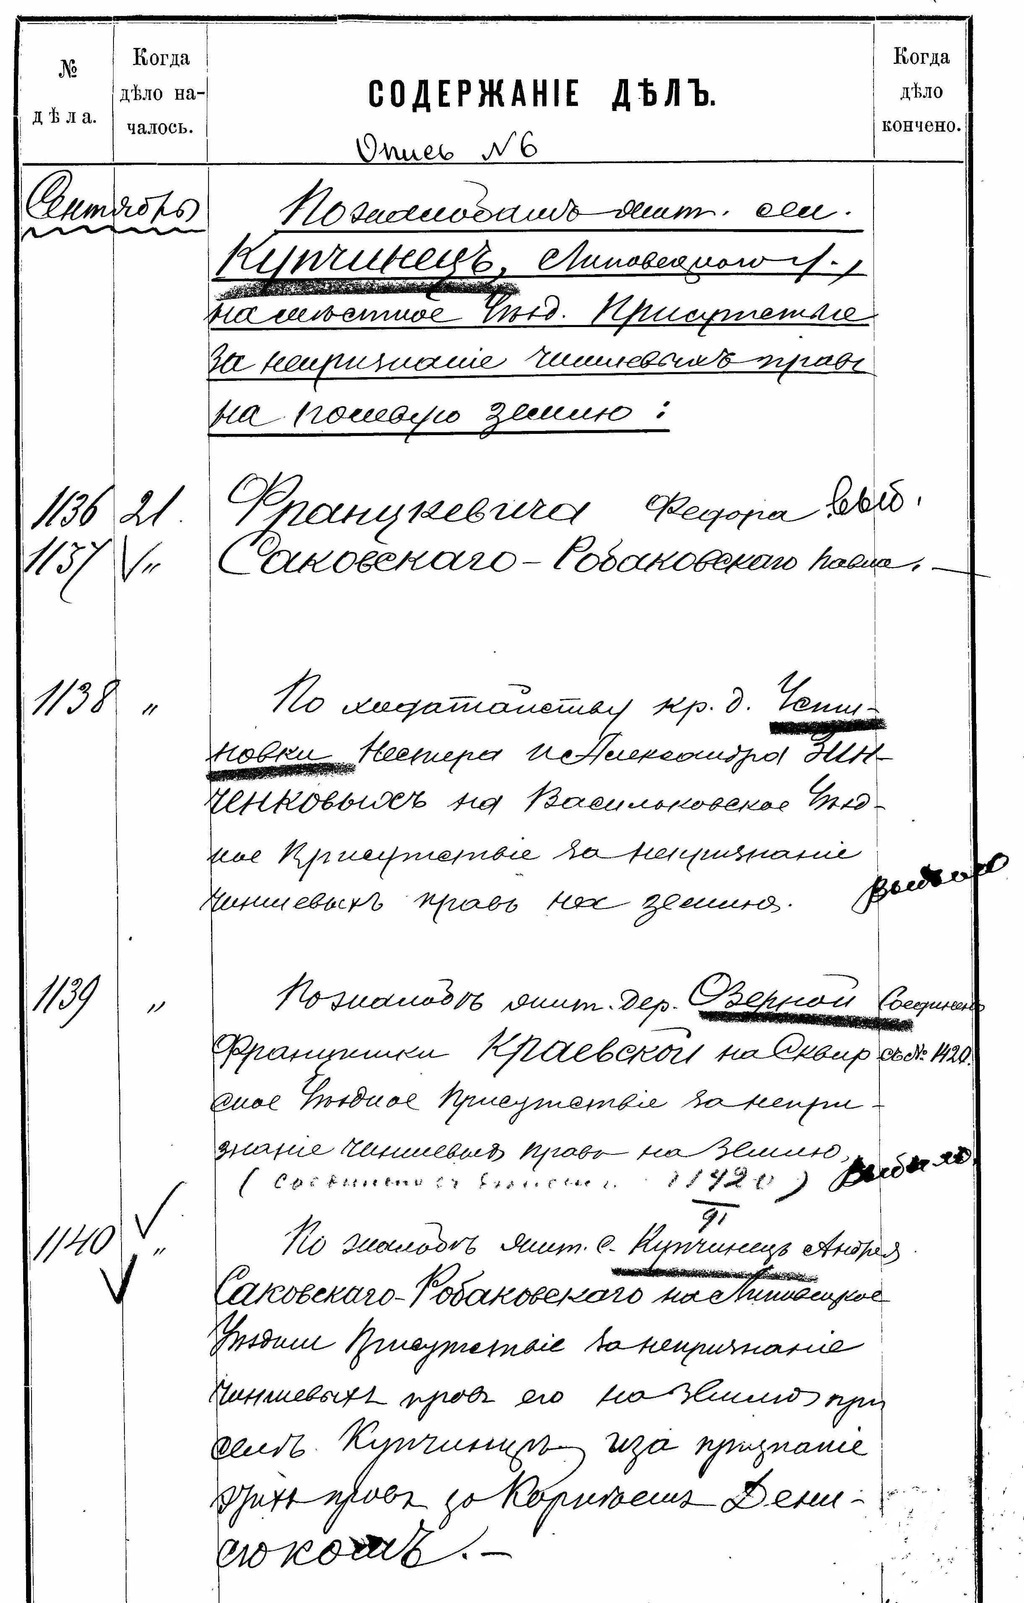 № дѣла.
Когда дѣло началось.
СОДЕРЖАНІЕ ДѢЛЪ.
Когда дѣло кончено.
Опись № 6
Сентябрь
По жалобамъ жит. сел.
Купчинецъ, Липовецкаго у.,
на мѣстное Уѣзд. Присутствіе
за непризнаніе чиншевыхъ правъ
на полевую землю:
1136 21. Францкевича Федора выб.
1137 V „ Саковскаго-Робаковскаго Павла. —
1138 „ По ходатайству кр. д. Усти-
новки Нестера и Александра Зин-
ченковыхъ на Васильковское Уѣзд-
ное Присутствіе за непризнаніе
чиншевыхъ правъ на землю. выбыло
1139 „ По жалобѣ жит. дер. Озерной Соединено
Францишки Краевской на Сквир съ № 1420.
ское Уѣздное Присутствіе за непри-
знаніе чиншевыхъ правъ на землю,
( 1420 ) выбыло.
91
1140 „ По жалобѣ жит. с. Купчинецъ Андрея
Саковскаго-Робаковскаго на Липовецкое
Присутствіе за непризнаніе
чиншевыхъ правъ его на землю при
селѣ Купчинцѣ, и за признаніе
этихъ правъ за Дени-
сюкомъ. —